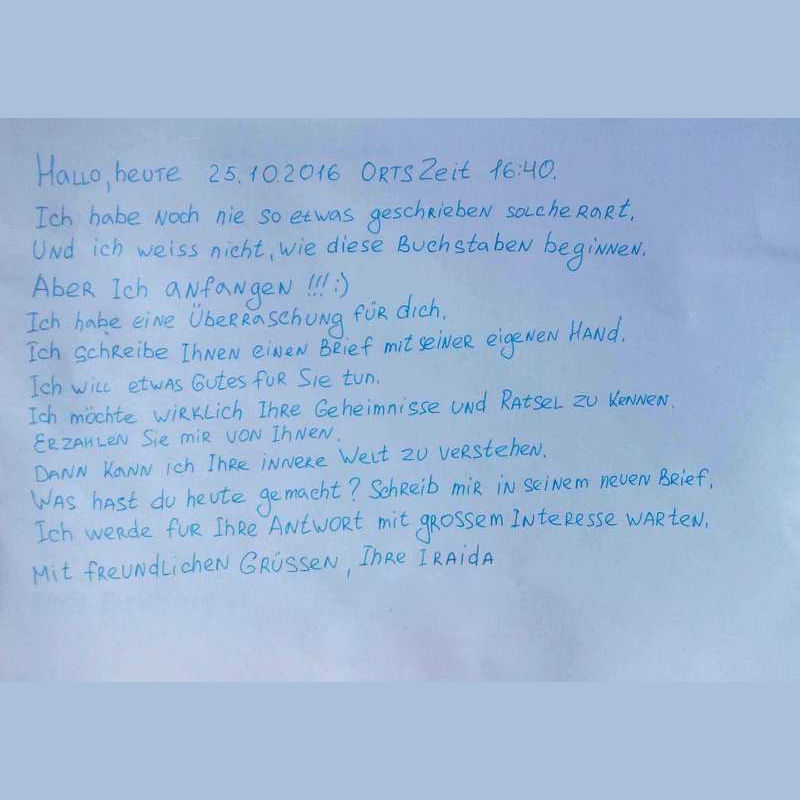 Hallo, heute 25.10.2016 Ortszeit 16:40.
Ich habe noch nie so etwas geschrieben solcherart.
Und ich weiss nicht, wie diese Buchstaben beginnen.
Aber Ich anfangen !!! :)
Ich habe eine Überraschung für dich.
Ich schreibe Ihnen einen Brief mit seiner eigenen Hand.
Ich will etwas Gutes fur Sie tun.
Ich möchte wirklich Ihre Geheimnisse und Ratsel zu kennen.
Erzahlen Sie mir von Ihnen.
Dann kann ich Ihre innere Welt zu verstehen.
Was hast du heute gemacht? Schreib mir in seinem neuen Brief.
Ich werde fur Ihre Antwort mit grossem Interesse warten.
Mit freundlichen Grüssen, Ihre Iraida